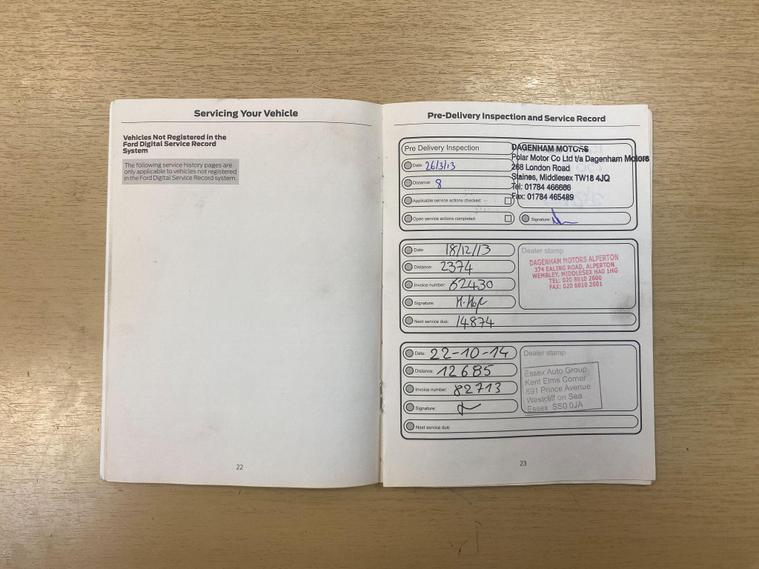 Servicing Your Vehicle
Vehicles Not Registered in the
Ford Digital Service Record
System
The following service history pages are
only applicable to vehicles not registered
in the Ford Digital Service Record system.
22
Pre-Delivery Inspection and Service Record
Pre Delivery Inspection
Date: 26/3/13
Distance: 8
Applicable service actions checked
Open service actions completed
DAGENHAM MOTORS
Polar Motor Co Ltd t/a Dagenham Motors
268 London Road
Staines, Middlesex TW18 4JQ
Tel: 01784 466666
Fax: 01784 465489
Signature:
Date: 18/12/13
Distance: 2374
Invoice number: 62430
Signature:
Next service due: 14874
Dealer stamp
DAGENHAM MOTORS ALPERTON
374 EALING ROAD, ALPERTON
WEMBLEY, MIDDLESEX HA0 1HG
TEL: 020 8810 2600
FAX: 020 8810 2601
Date: 22-10-14
Distance: 12685
Invoice number: 82713
Signature:
Next service due:
Dealer stamp
Essex Auto Group
Kent Elms Corner
591 Prince Avenue
Westcliff on Sea
Essex SS0 0JA
23